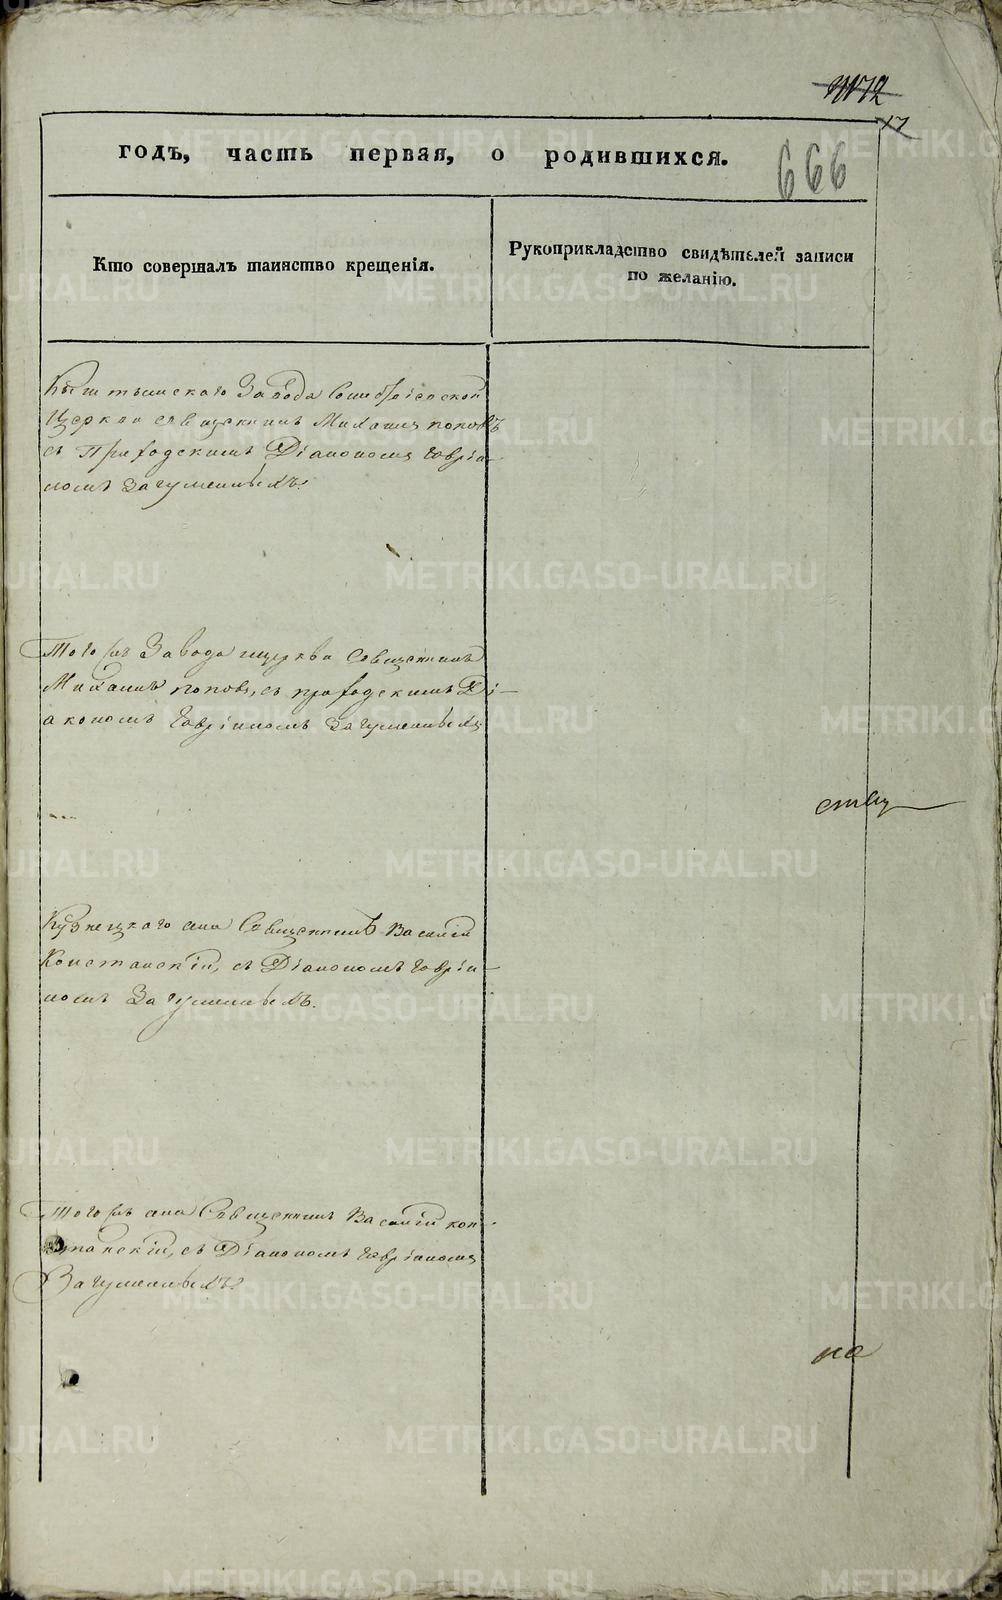 17
годъ, часть первая, о родившихся.
666
Кто совершалъ таинство крещенія.
Рукоприкладство свидѣтелей записи
по желанію.
Кыштымскаго Завода
Церкви священникъ Михаилъ Поповъ
съ Приходскимъ Діакономъ Гаврі-
иломъ Загуменныхъ.
Тогожъ Завода церкви Священникъ
Михаилъ Поповъ, съ приходскимъ Ді-
акономъ Гавріиломъ Загуменныхъ
Священникъ Василій
съ Діакономъ Гаврі-
иломъ Загуменныхъ.
Тогожъ Священникъ Василій Кон-
съ Діакономъ Гавріиломъ
Загуменныхъ.
METRIKI.GASO-URAL.RU